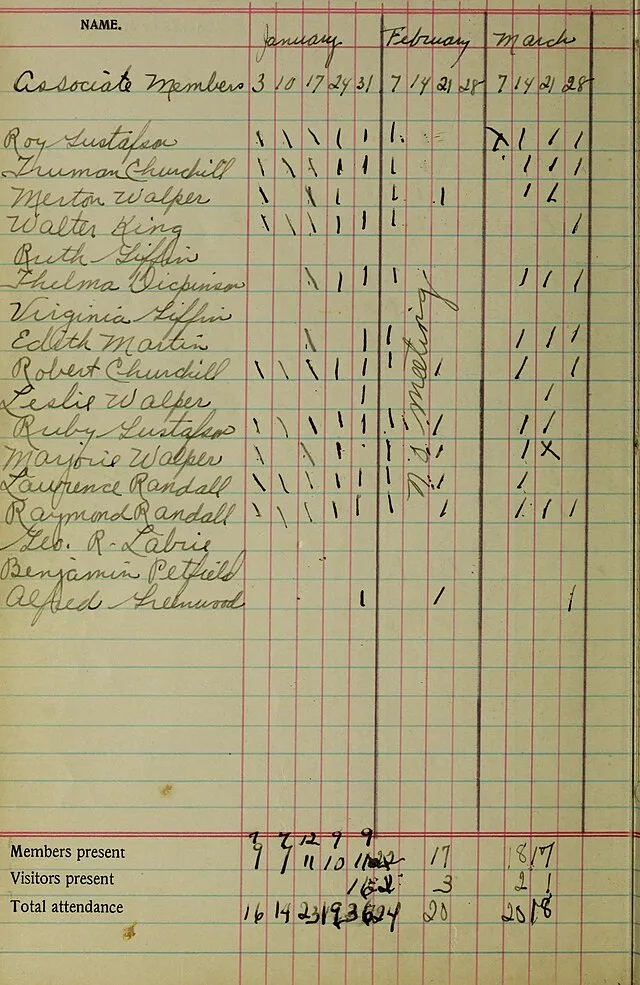 NAME.
January February March
Associate Members 3 10 17 24 31 7 14 21 28 7 14 21 28
Roy Gustafson
Truman Churchill
Merton Walper
Walter King
Ruth Giffin
Thelma Dickinson
Virginia Giffin
Edith Martin
Robert Churchill
Leslie Walper
Ruby Gustafson
Marjorie Walper
Lawrence Randall
Raymond Randall
Geo. R. Labrie
Benjamin Petfield
Alfred Greenwood
no meeting
9 7 12 9 9
Members present 9 7 11 10 11 22 17 18 17
Visitors present 16 2 3 2 1
Total attendance 16 14 23 19 36 24 20 20 18